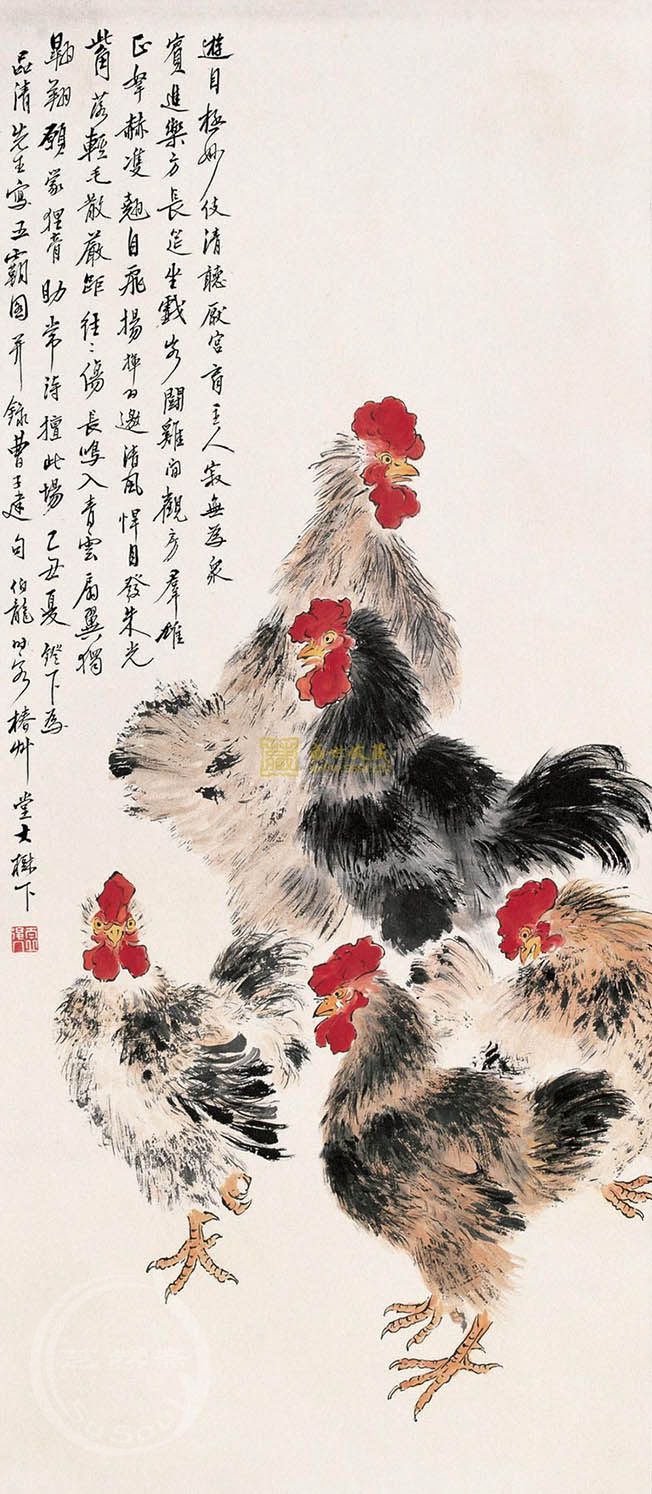 遊目極妙伎清聽厭宮商主人寂無為衆
賓進樂方長筵坐戲客鬪雞閒觀房羣雄
正翕赫雙翹自飛揚揮羽邀清風悍目發朱光
觜落輕毛散嚴距往〻傷長鳴入青雲扇翼獨
翱翔願蒙狸膏助常得擅此場 乙丑夏燈下為
品清先生寫五霸圖并錄曹子建句 伯龍時客椿艸堂大樹下